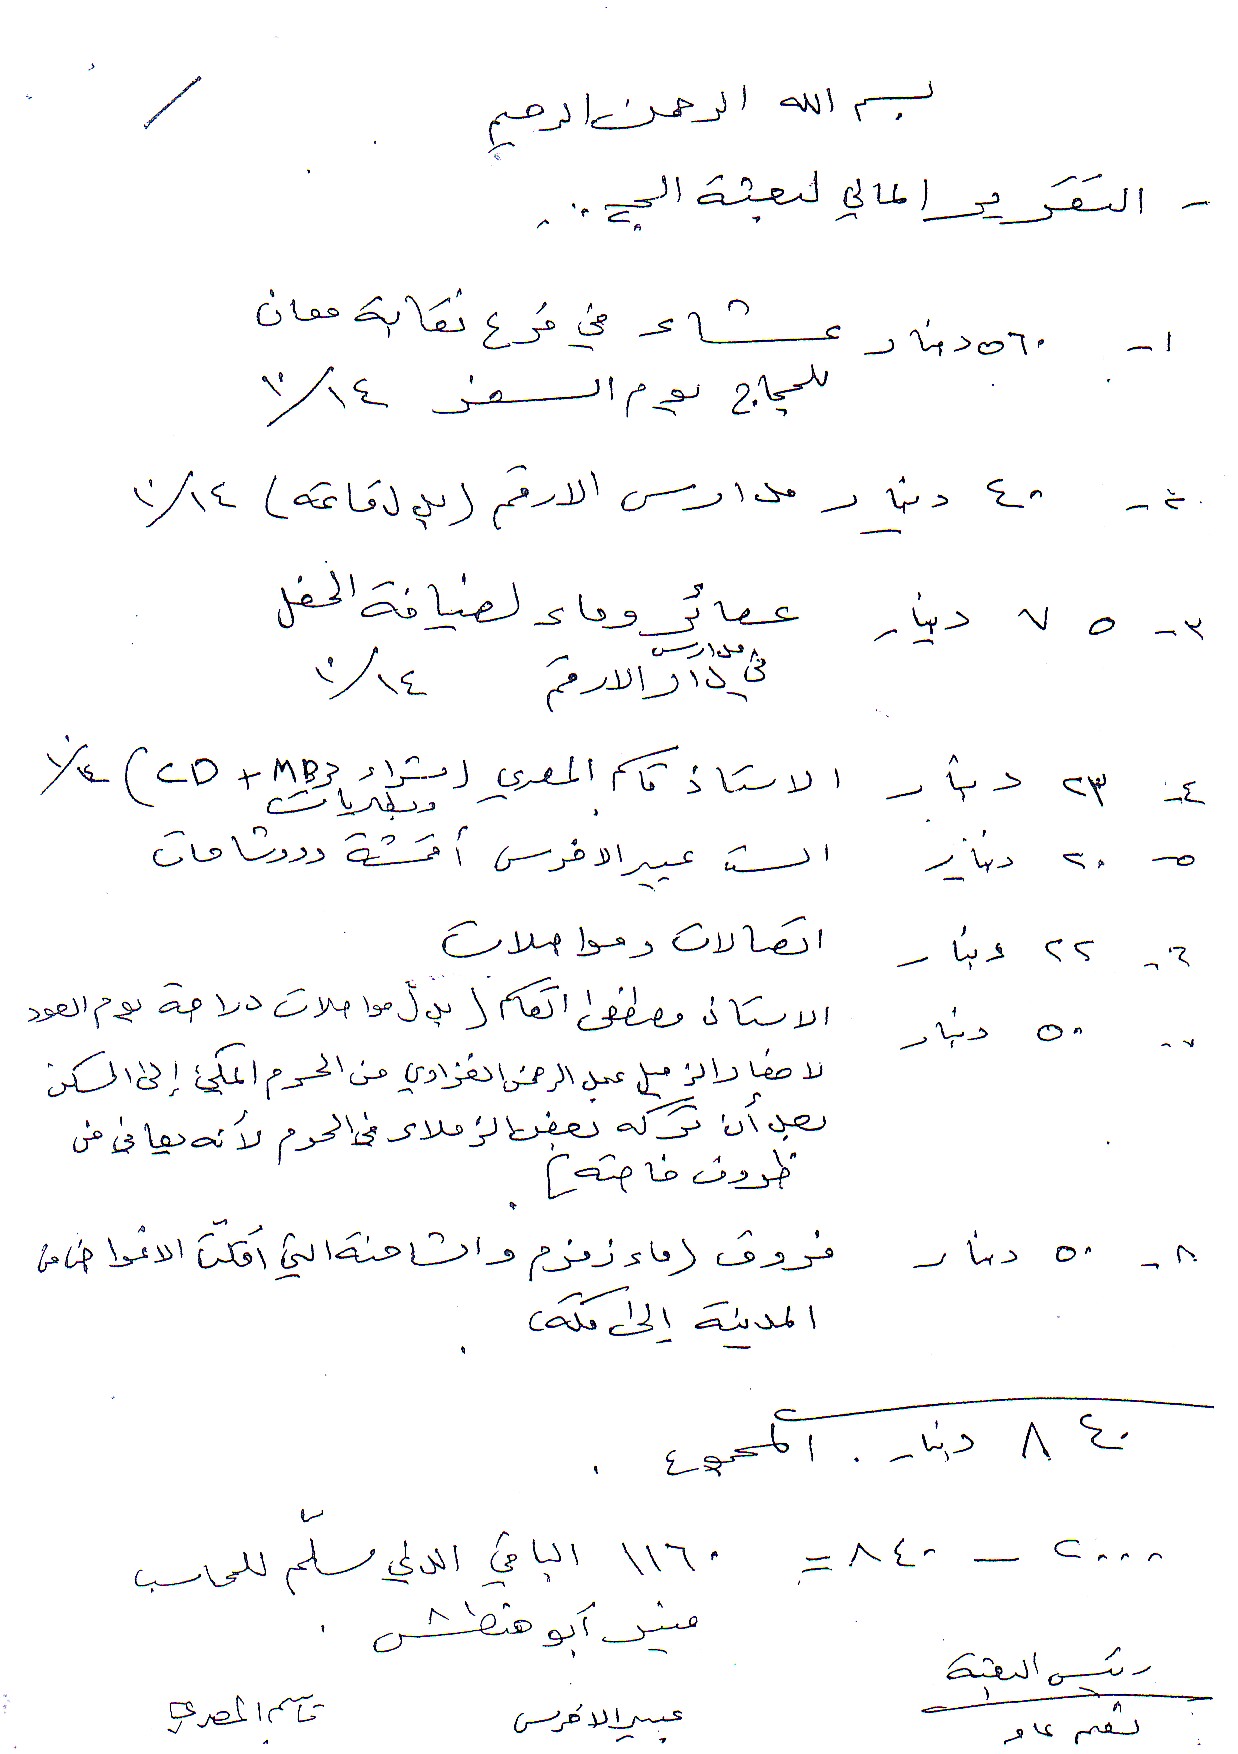 بسم الله الرحمن الرحيم
- التقرير المالي لبعثة الحج ..
١- ٥٦٠ دينار عشاء في فرع نقابة معان
للحجاج يوم السفر ١٠/١٤
٢- ٤٠ دينار مدارس الارقم (بدل قاعة) ١٠/١٤
٣- ٧٥ دينار عصائر وماء لضيافة الحفل
في مدارس دار الارقم ١٠/١٤
٤- ٢٣ دينار الاستاذ قاسم المصري (شراء CD + MB3) ١٠/١٤
وبطاريات
٥- ٢٠ دينار الست عبير الاخرس أقمشة ووشاحات
٦- ٢٢ دينار اتصالات ومواصلات
٧- ٥٠ دينار الاستاذ مصطفى (بدل مواصلات دراجة يوم العود
لاحضار الزميل عبد الرحمن الغزاوي من الحرم المكي إلى السكن
بعد أن تركه بعض الزملاء في الحرم لأنه يعاني من
ظروف خاصة)
٨- ٥٠ دينار فروق (ماء زمزم والشاحنة التي أقلّت الاغراض من
المدينة إلى مكة)
٨٤٠ دينار . المجموع .
٢٠٠٠ - ٨٤٠ = ١١٦٠ الباقي الذي سلّم للمحاسب
منير أبو هنطش .
رئيس البعثة
عبير الاخرس
قاسم المصري